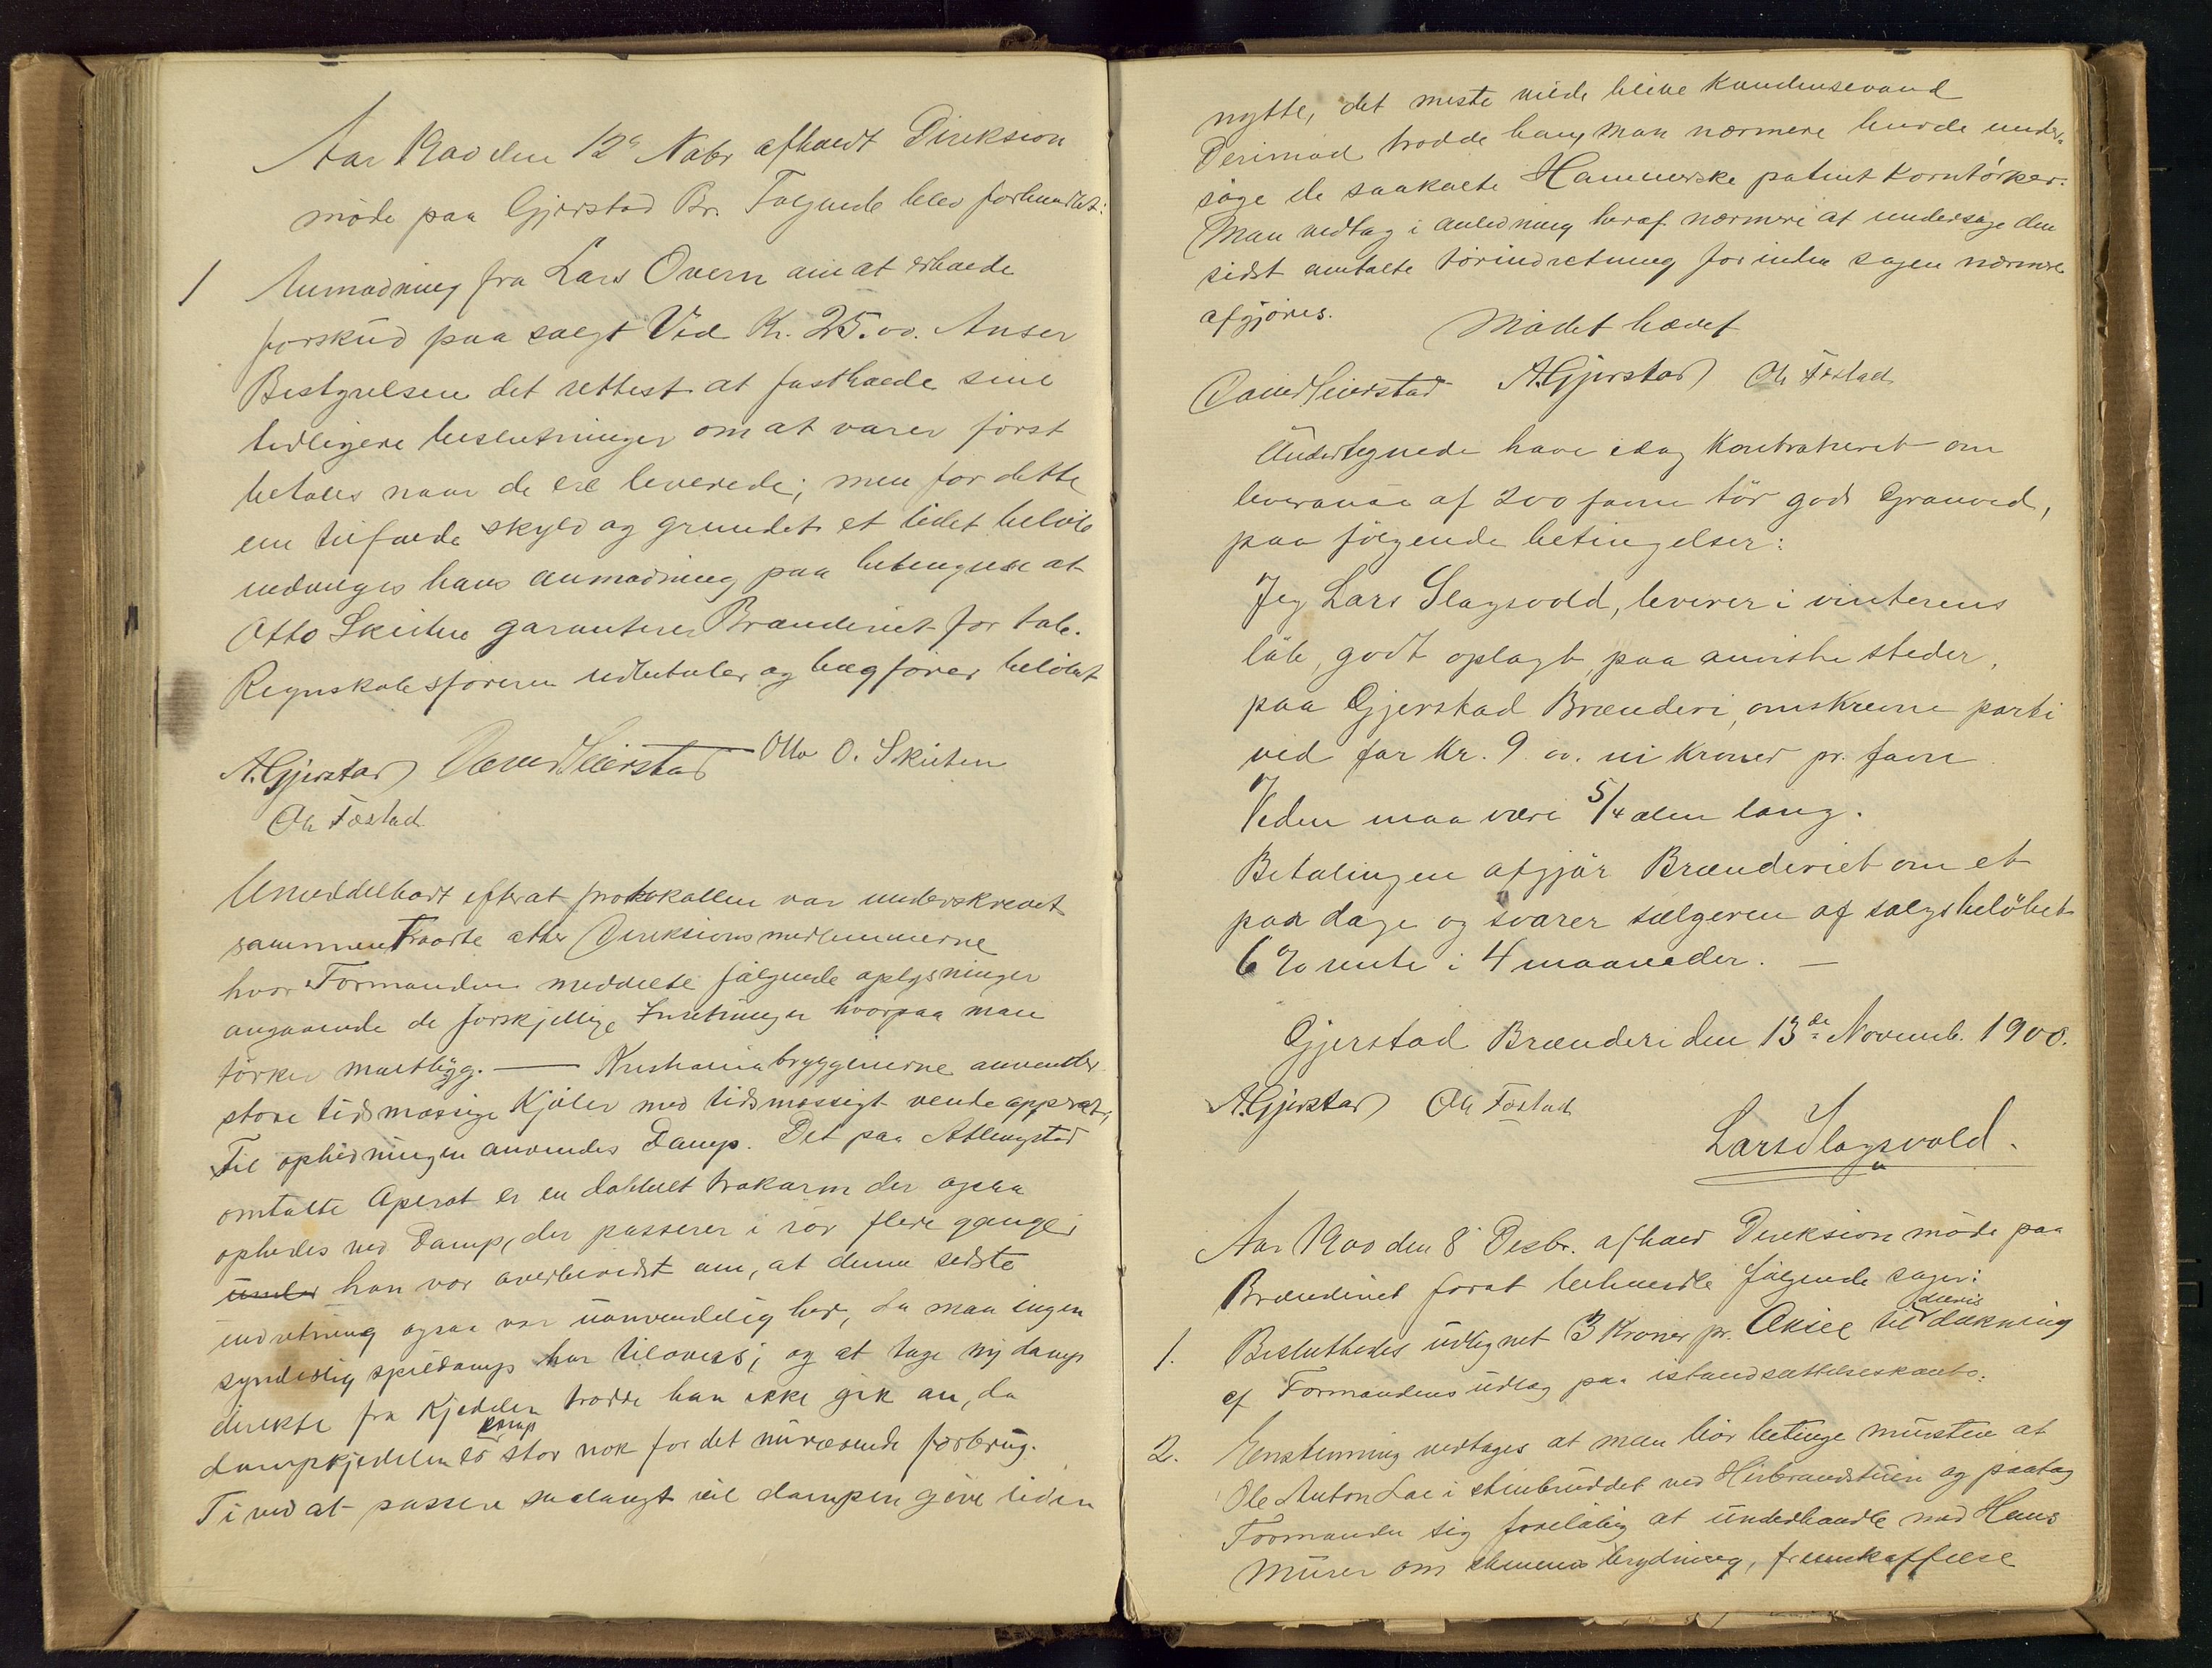 Aar 1900 den 12e Nobr afholdt Direksion
møde paa Gjerstad Br. Følgende blev forhandlet:
1 Anmodning fra Lars Overn om at erholde
forskud paa solgt Ved Kr. 25.00. Anser
Bestyrelsen det rettest at fastholde sine
tidligere beslutninger om at varer først
betales naar de ere leverede; men for dette
ene tilfælde skyld og grundet et lidet beløb
indvilges hans anmodning paa betingelse at
Otto Skiten garanterer Brænderiet for tab.
Regnskabsføreren udbetaler og bogfører beløbet
A. Gjerstad Otto O. Skiten
Ole Fostad
Umiddelbart efterat protokollen var underskrevet
sammentraadte atter Direksionsmedlemmerne
hvor Formanden meddelte følgende oplysninger
angaaende de forskjellige Indretninger hvorpaa man
tørker maltbygg. — Kristiania bryggerierne anvender
store tidsmæssige Kjøler med tidsmæssigt vende apprat,
Til ophedningen anvendes Damp. Det paa Atlungstad
omtalte Aperat er en dobbelt trakarm der ogsaa
ophedes ved Damp, der passerer i rør flere gange i
under han var overbevidst om, at denne sidste
indretning ogsaa var uanvendelig her, da man ingen
synderlig spildamp har tilovers; og at tage ny damp
direkte fra Kjedelen trodde han ikke gik an, da
dampkjedelen er knap stor nok for det nuværende forbrug.
Ti ved at passere saalangt vil dampen give liden
nytte, det meste vilde blive Kondensevand
Derimod trodde han, man nærmere burde under-
søge de saakalte Hammerske patent Korntørker.
Man vedtog i anledning heraf nærmere at undersøge den
sidst omtalte tørindretning for inden sagen nærmere
afgjøres.
Mødet hævet
A. Gjerstad Ole Fostad
Undertegnede have idag Kontrakeret om
leverance af 200 favne tør god Granved,
paa følgende betingelser:
Jeg Lars Slagsvold, leverer i vinterens
løb, godt oplagt, paa anviste steder,
paa Gjerstad Brænderi, omskrevne parti
ved for Kr. 9 00. ni Kroner pr. favn
Veden maa være 5/4 alen lang.
Betalingen afgjør Brænderiet om et
paar dage og svarer sælgeren af salgsbeløbet
6% rente i 4 maaneder. —
Gjerstad Brænderi den 13de Novemb. 1900.
A. Gjerstad Ole Fostad
Lars Slagsvold.
Aar 1900 den 8 Desbr. afholt Direksion møde paa
Brænderiet forat behandle følgende sager:
1. Besluttedes udlignet 3 Kroner pr. Aksie til delvis dækning
af Formandens udlæg paa istandsættelseskonto.
2. Enstemmig vedtages at man bør betinge mursten at
Ole Anton Lae i stenbruddet ved og paatog
Formanden sig foreløbig at underhandle med Hans
Murer om stenens brydning, fremskaffelse